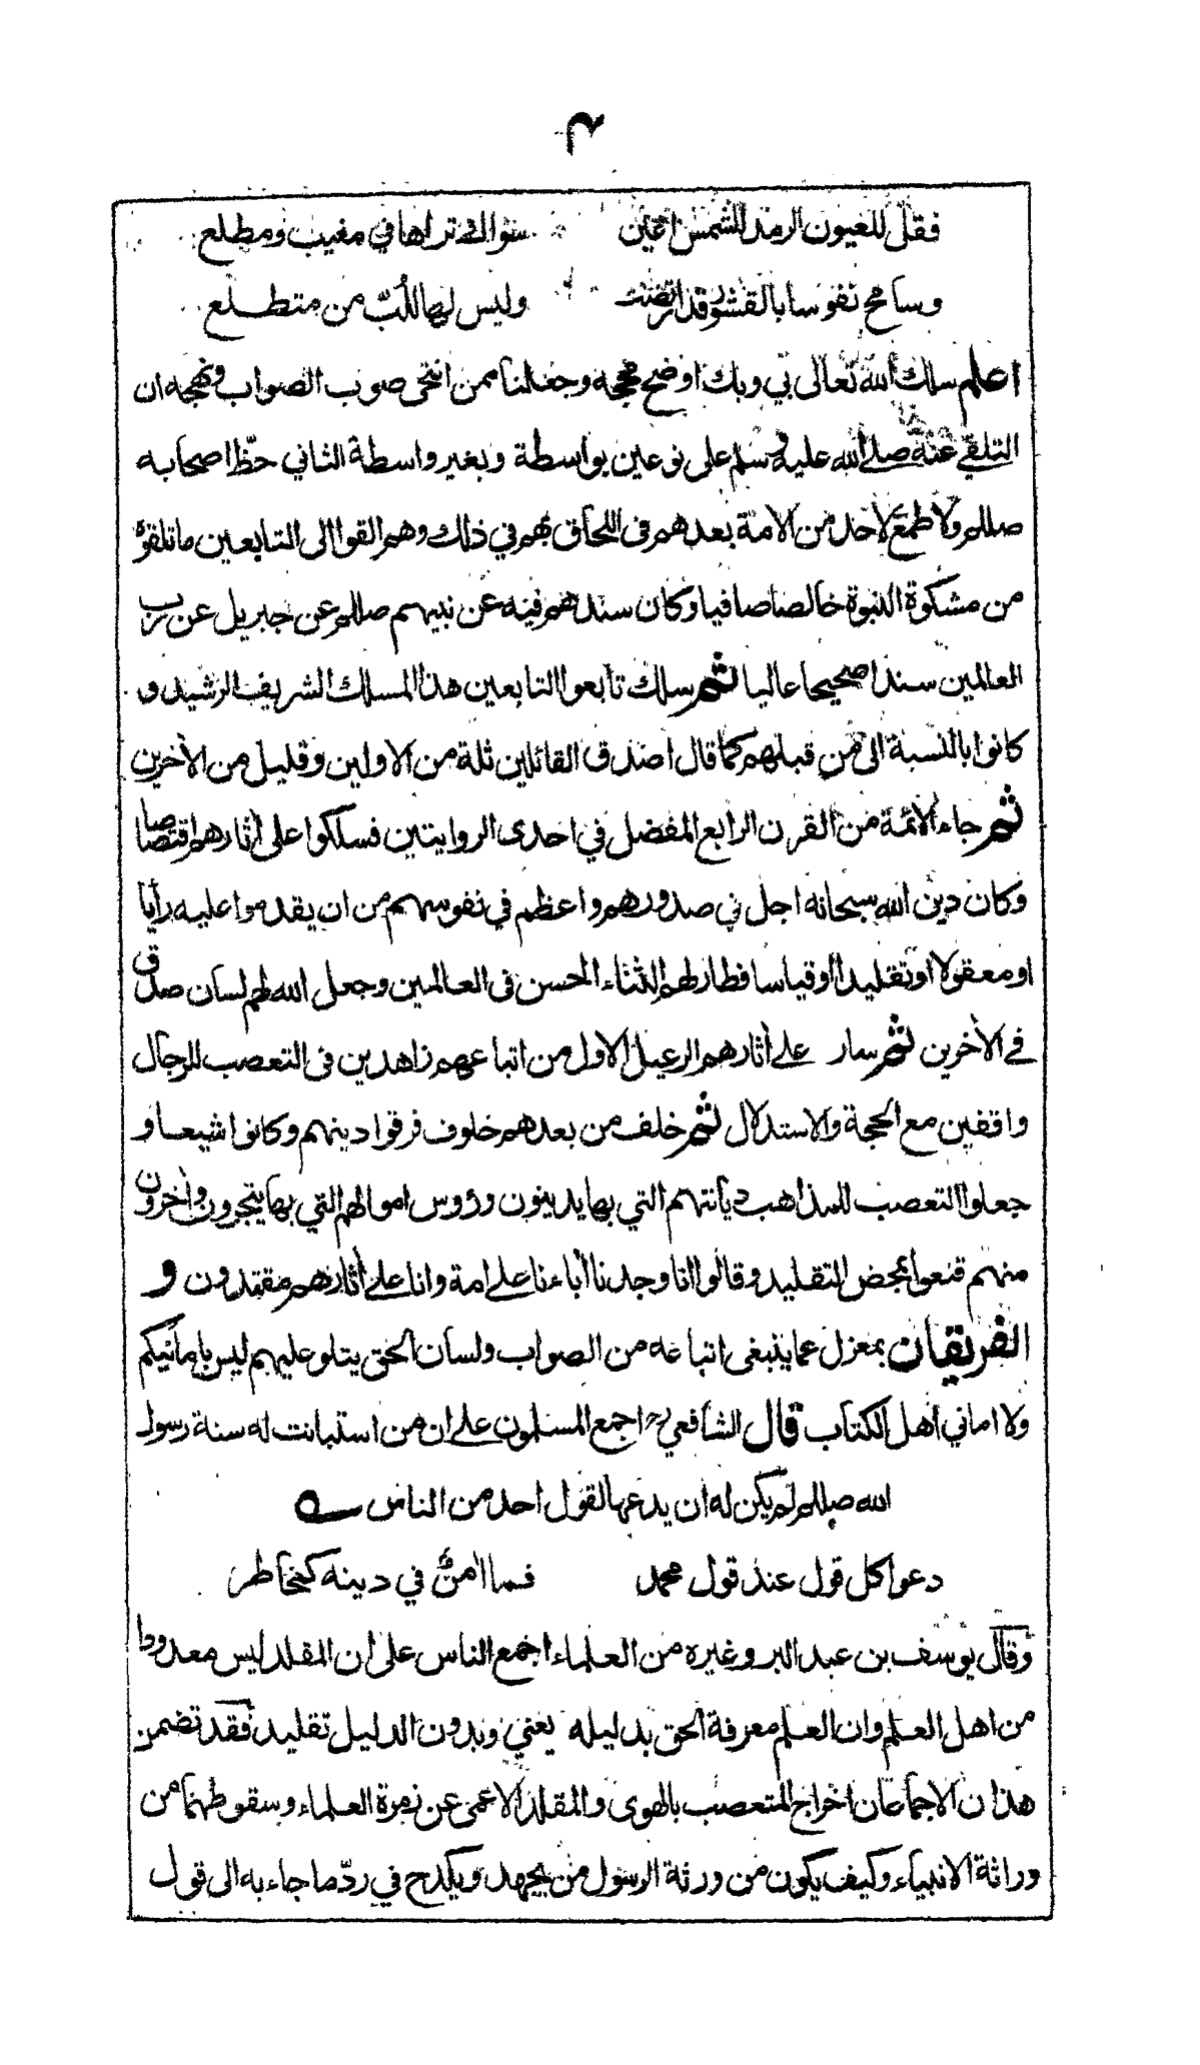 فقل للعيون الرمد للشمس اعين سواك تراها في مغيب ومطلع
وسامح نفوسا بالقشور قد ارتضت وليس لها للُبّ من متطلع
اعلم سلك الله تعالى بي وبك اوضح محجه وجعلنا ممن انتحى صوب الصواب ونهجه ان
التلقي عنه صلے الله عليه وسلم على نوعين بواسطة وبغير واسطة الثاني حظّ اصحابه
صللم ولا طمع لاحد من الامة بعدهم في اللحاق بهم في ذلك وهم القوا الى التابعين ما تلقوْه
من مشكوة النبوة خالصا صافيا وكان سندهم فيه عن نبيهم صللم عن جبريل عن رب
العالمين سندا صحيحا عاليا ثم سلك تابعوا التابعين هذا المسلك الشريف الرشيد و
كانوا بالنسبة الى من قبلهم كما قال اصدق القائلين ثلة من الاولين وقليل من الأخرين
ثم جاء الأئمة من القرن الرابع المفضل في احدى الروايتين فسلكوا على أثارهم اقتصاصا
وكان دين الله سبحانه اجل في صدورهم واعظم في نفوسهم من ان يقدموا عليه رأيا
او معقولا او تقليدا او قياسا فطار لهم الثناء الحسن في العالمين وجعل الله لهم لسان صدق
في الأخرين ثم سار علے أثارهم الرعيل الاول من اتباعهم زاهدين في التعصب للرجال
واقفين مع الحجة والاستدلال ثم خلف من بعدهم خلوف فرقوا دينهم وكانوا شيعا و
جعلوا التعصب للمذاهب ديانتهم التي بها يدينون ورؤس اموالهم التي بها يتجرون وأخرون
منهم قنعوا بمحض التقليد وقالوا انا وجدنا أباءنا علے امة وانا علے أثارهم مقتدون و
الفريقان بمعزل عما ينبغي اتباعه من الصواب ولسان الحق يتلو عليهم ليس بامانيكم
ولا اماني اهل الكتاب قال الشافعي رح اجمع المسلمون علے ان من استبانت له سنة رسول
الله صللم لم يكن له ان يدعها لقول احد من الناس ه
دعوا كل قول عند قول محمد فما أمنٌ في دينه كمخاطر
وقال يوسف بن عبد البر وغيره من العلماء اجمع الناس على ان المقلد ليس معدودا
من اهل العلم وان العلم معرفة الحق بدليله يعني وبدون الدليل تقليد فقد تضمن
هذان الاجماعان اخراج المتعصب بالهوى والمقلد الاعمى عن زمرة العلماء وسقوطهما من
وراثة الانبياء وكيف يكون من ورثة الرسول من يجهد ويكدح في ردّ ما جاء به الى قول